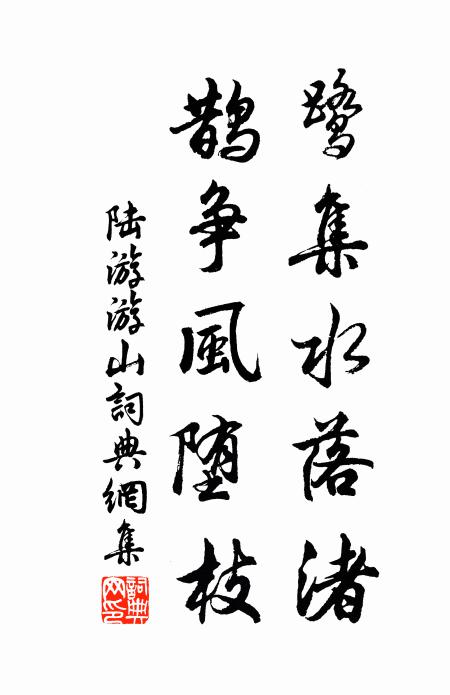 鷺集水落渚
鵲争風堕枝
陆游游山詞典網集
詞典網印